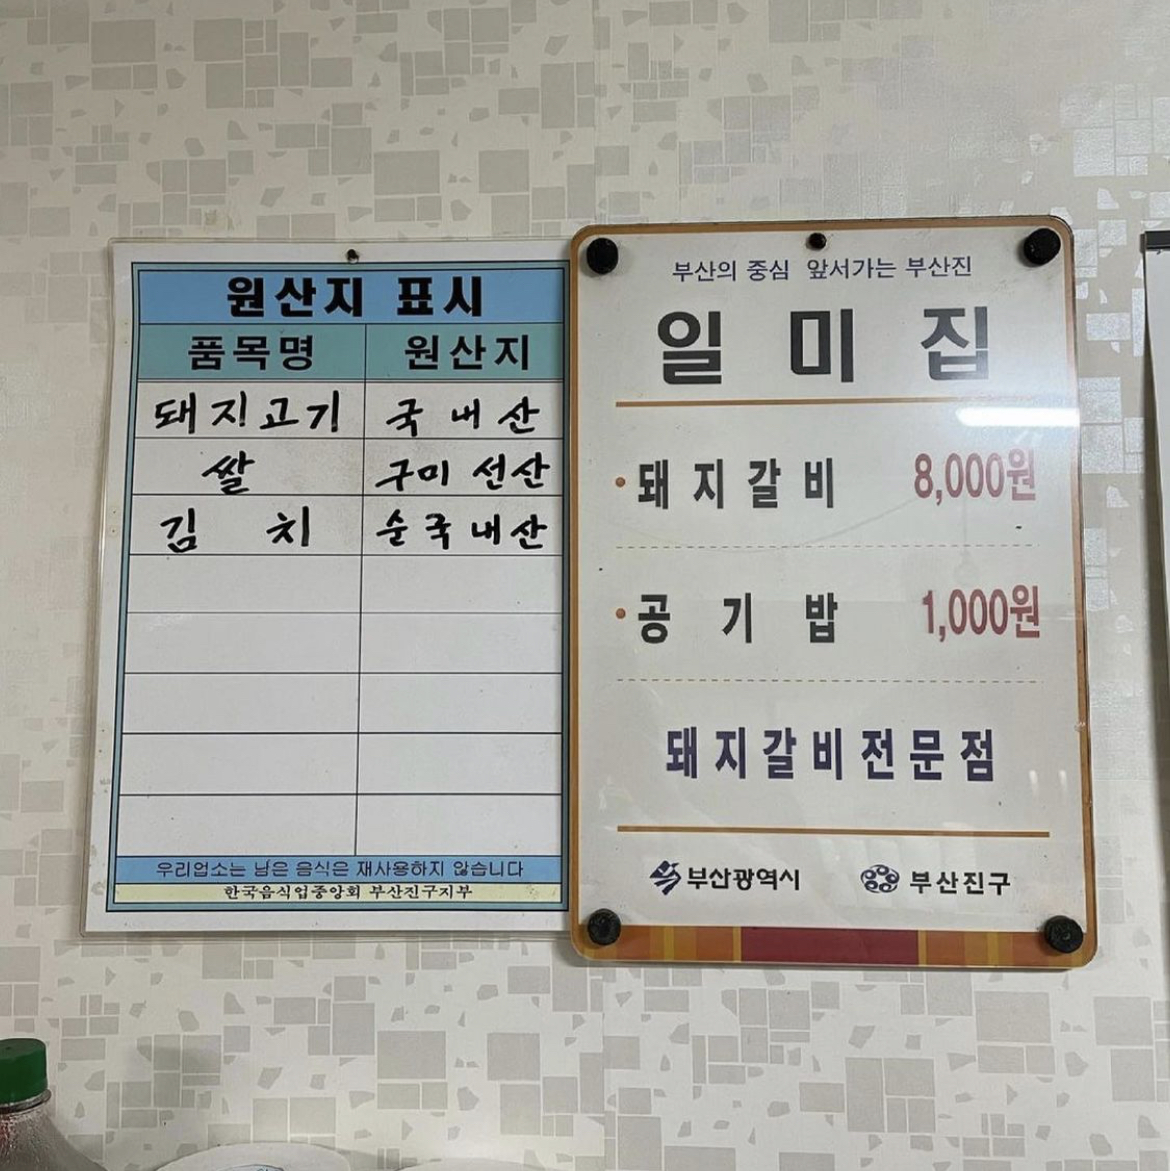 원산지 표시
품목명 원산지
돼지고기 국내산
쌀 구미 선산
김치 순국내산
우리업소는 남은 음식은 재사용하지 않습니다
한국음식업중앙회 부산진구지부
부산의 중심 앞서가는 부산진
일미집
돼지갈비 8,000원
공기밥 1,000원
돼지갈비전문점
부산광역시 부산진구